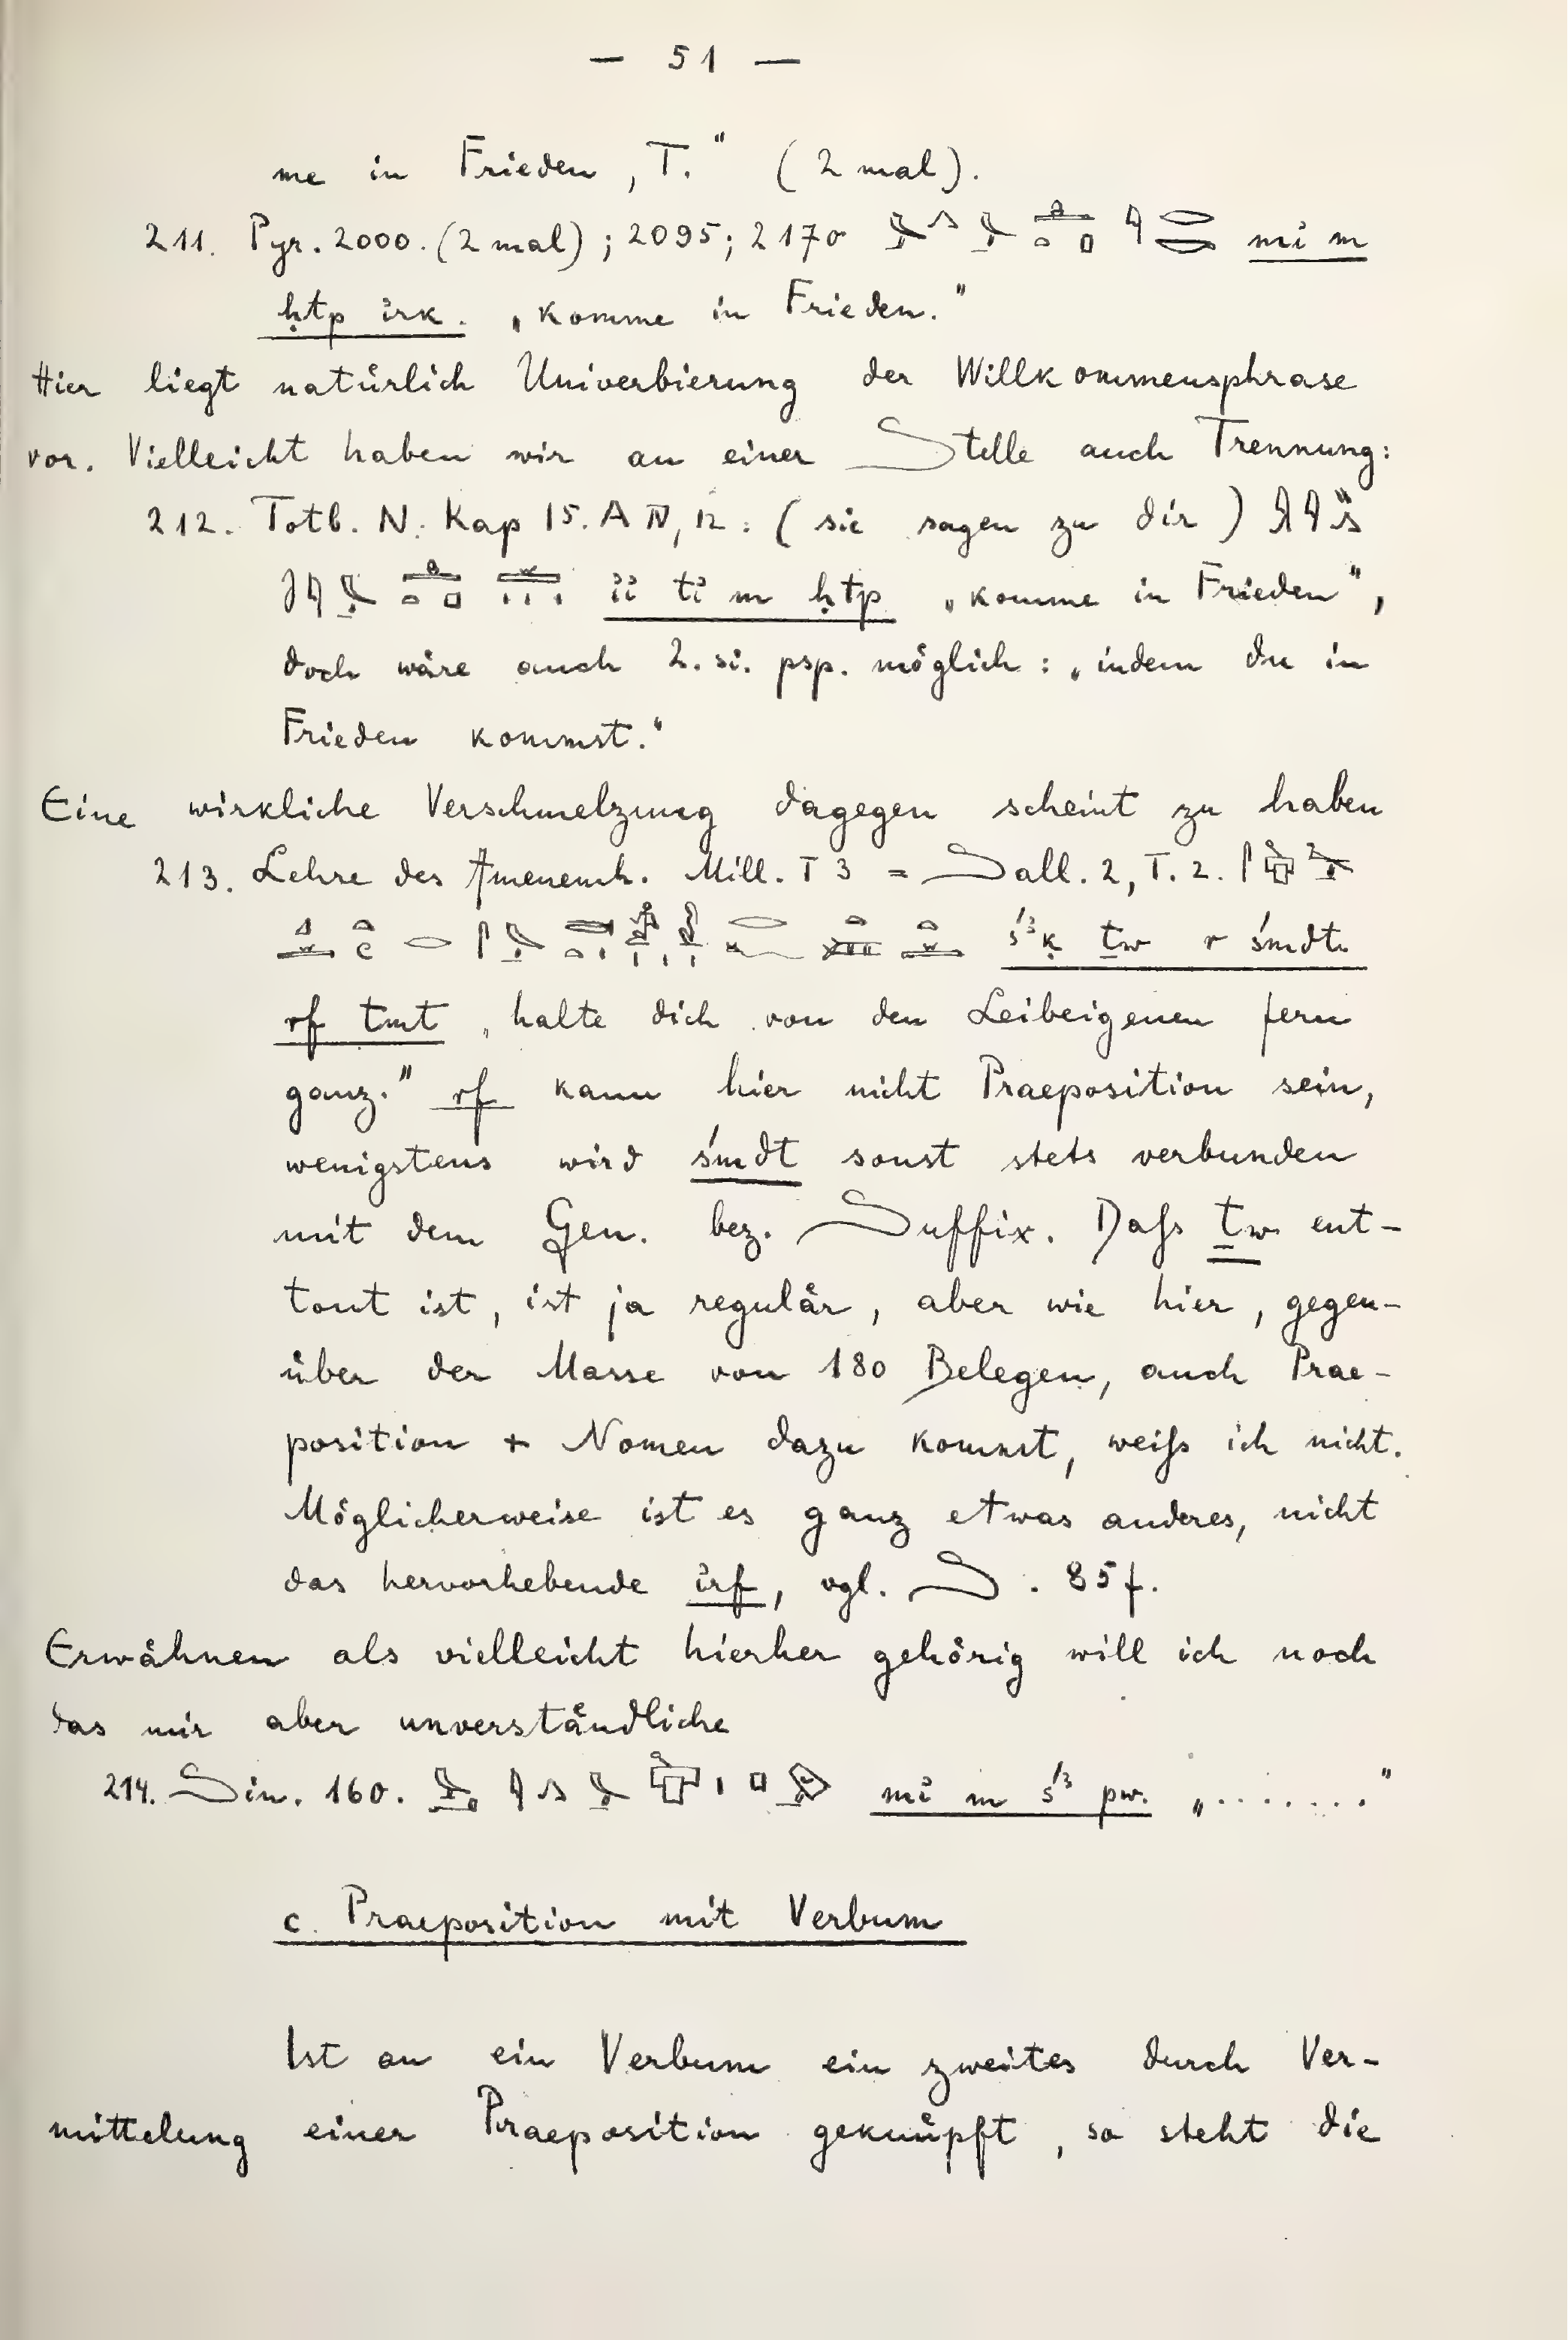 — 51 —
me in Frieden, T." (2 mal).
211. Pyr. 2000. (2 mal); 2095; 2170 mi m
ḥtp irk. „komme in Frieden."
Hier liegt natürlich Univerbierung der Willkommensphrase
vor. Vielleicht haben wir an einer Stelle auch Trennung:
212. Totb. N. Kap 15. A IV, 12: (sie sagen zu dir)
ii ti m ḥtp „komme in Frieden",
doch wäre auch 2. si. psp. möglich: „indem du in
Frieden kommst."
Eine wirkliche Verschmelzung dagegen scheint zu haben
213. Lehre des Amenemh. Mill. I 3 = Sall. 2, I. 2.
ś3ḳ ṯw r śmdt
rf tmt „halte dich von den Leibeigenen fern
ganz." rf kann hier nicht Praeposition sein,
wenigstens wird śmdt sonst stets verbunden
mit dem Gen. bez. Suffix. Daſs ṯw ent-
tont ist, ist ja regulär, aber wie hier, gegen-
über der Masse von 180 Belegen, auch Prae-
position + Nomen dazu kommt, weiſs ich nicht.
Möglicherweise ist es ganz etwas anderes, nicht
das hervorhebende irf, vgl. S. 85f.
Erwähnen als vielleicht hierher gehörig will ich noch
das mir aber unverständliche
214. Sin. 160. mi m ś3 pw. „......."
c. Praeposition mit Verbum
Ist an ein Verbum ein zweites durch Ver-
mittelung einer Praeposition geknüpft, so steht die